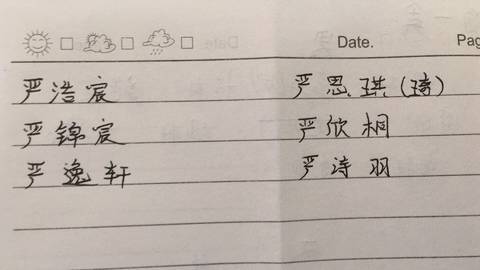 Date. Pag
严浩宸 严思琪(琦)
严锦宸 严欣桐
严逸轩 严诗羽